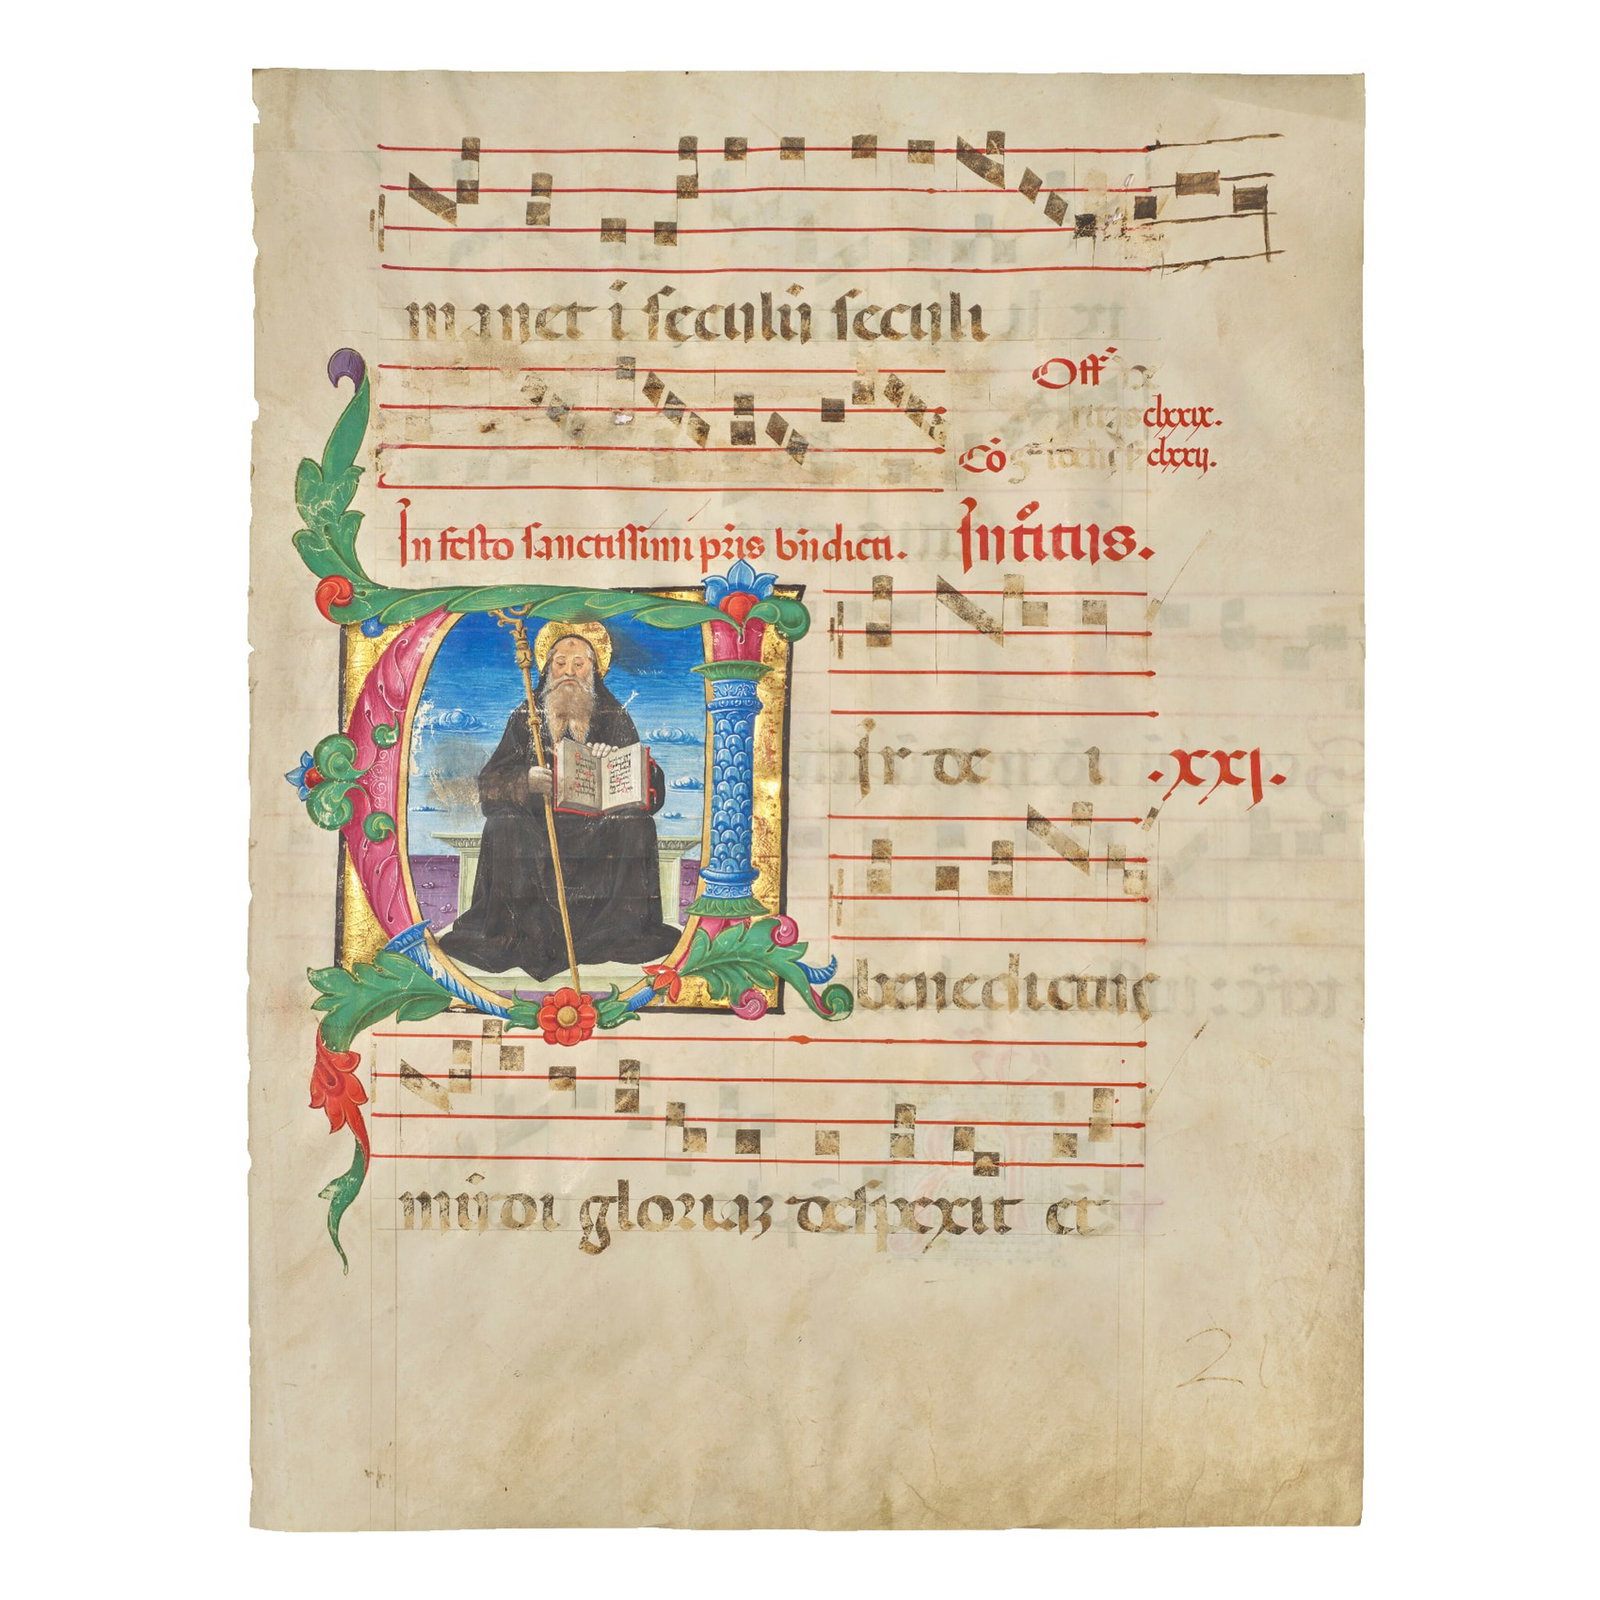 manet ī seculū seculi
Off
clxxix.
Cō clxxij.
In festo sanctissimi pris bn̄dicti. Intitus.
Uir de i .xxj.
benedictus
mūdi gloriaz despexit et
2